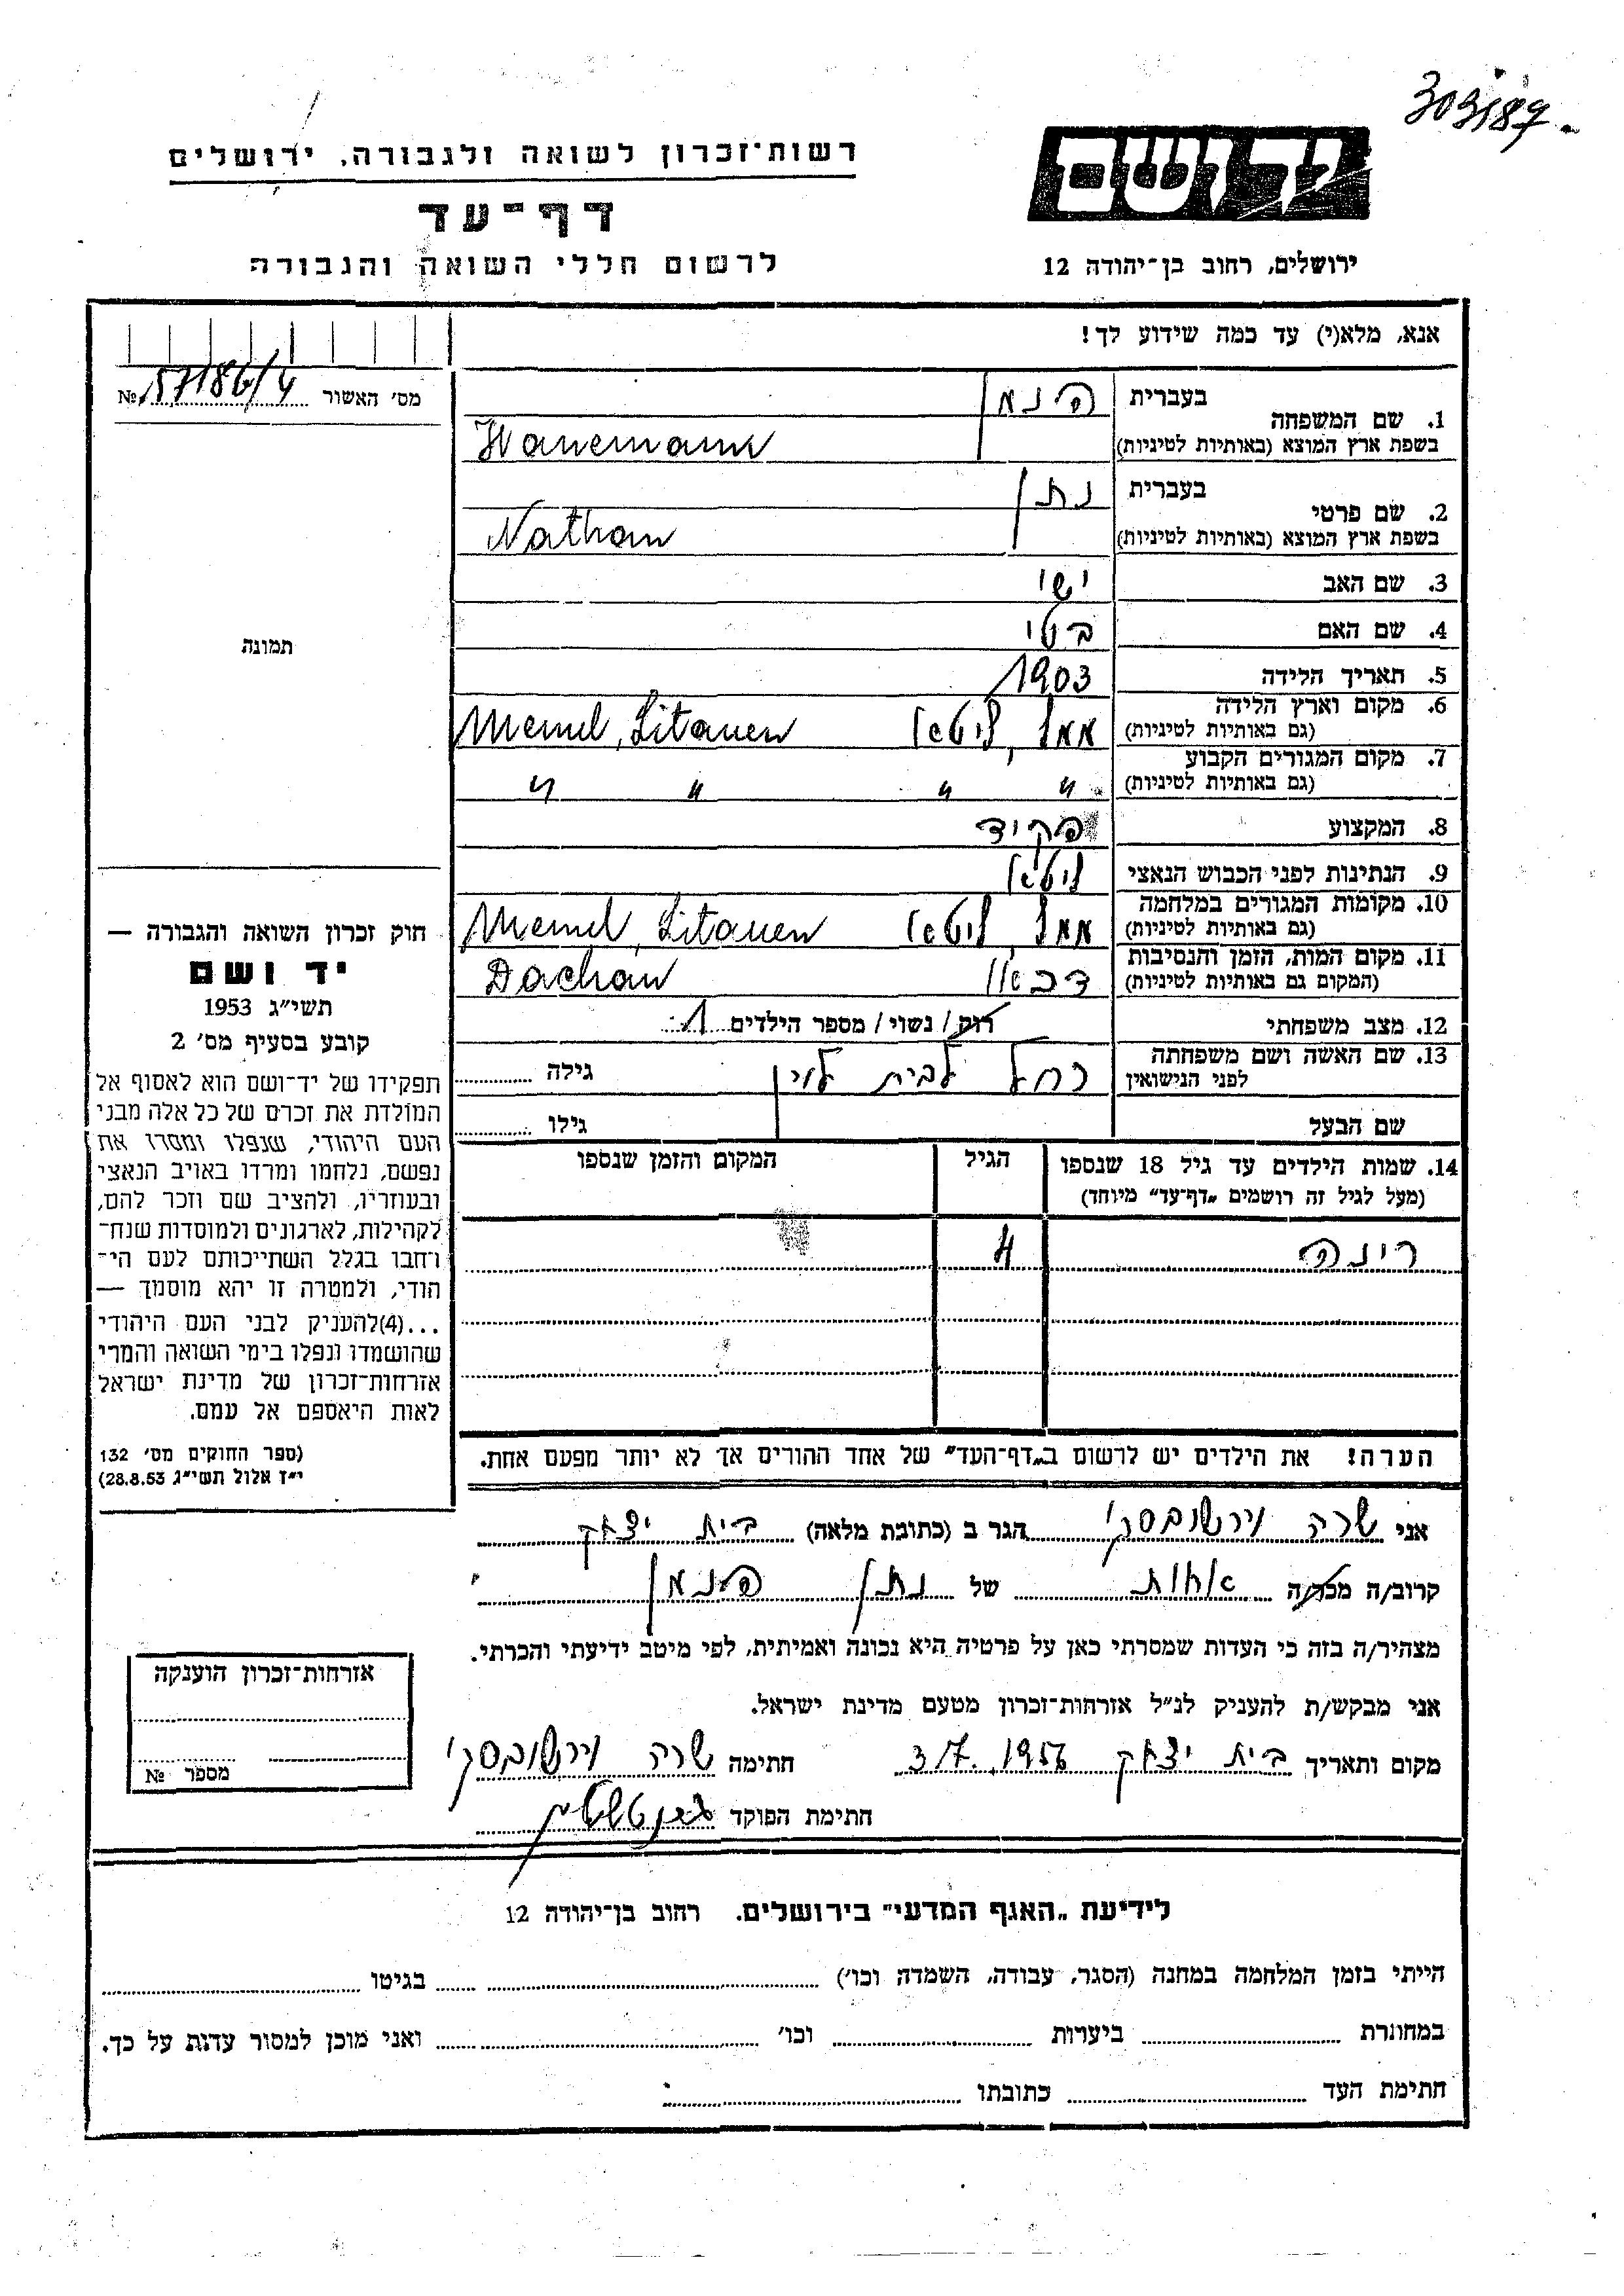 303187
יד ושם
רשות־זכרון לשואה ולגבורה, ירושלים
דף־עד
לרשום חללי השואה והגבורה
ירושלים, רחוב בן־יהודה 12
אנא, מלא(י) עד כמה שידוע לך!
מס׳ האשור № 57186/4
תמונה
1. שם המשפחה בעברית הנמן
בשפת ארץ המוצא (באותיות לטיניות) Hanemann
2. שם פרטי בעברית נתן
בשפת ארץ המוצא (באותיות לטיניות) Nathan
3. שם האב ישי
4. שם האם בטי
5. תאריך הלידה 1903
6. מקום וארץ הלידה ממל, ליטא Memel, Litauen
(גם באותיות לטיניות)
7. מקום המגורים הקבוע " " " "
(גם באותיות לטיניות)
8. המקצוע פקיד
9. הנתינות לפני הכבוש הנאצי ליטא
10. מקומות המגורים במלחמה ממל, ליטא Memel, Litauen
(גם באותיות לטיניות)
11. מקום המות, הזמן והנסיבות דכאו Dachau
(המקום גם באותיות לטיניות)
12. מצב משפחתי רוק / נשוי / מספר הילדים 1
13. שם האשה ושם משפחתה רחל לבית לוין גילה
לפני הנישואין
שם הבעל גילו
14. שמות הילדים עד גיל 18 שנספו הגיל המקום והזמן שנספו
(מעל לגיל זה רושמים „דף־עד” מיוחד)
רינה 4
הערה! את הילדים יש לרשום ב„דף־העד” של אחד ההורים אך לא יותר מפעם אחת.
חוק זכרון השואה והגבורה —
יד ושם
תשי״ג 1953
קובע בסעיף מס׳ 2
תפקידו של יד־ושם הוא לאסוף אל
המולדת את זכרם של כל אלה מבני
העם היהודי, שנפלו ומסרו את
נפשם, נלחמו ומרדו באויב הנאצי
ובעוזריו, ולהציב שם וזכר להם,
לקהילות, לארגונים ולמוסדות שנח־
רחבו בגלל השתייכותם לעם הי־
הודי, ולמטרה זו יהא מוסמך —
...(4)להעניק לבני העם היהודי
שהושמדו ונפלו בימי השואה והמרי
אזרחות־זכרון של מדינת ישראל
לאות היאספם אל עמם.
(ספר החוקים מס׳ 132
י״ז אלול תשי״ג 28.8.53)
אני שרה וירשובסקי הגר ב (כתובת מלאה) בית יצחק
קרוב/ה מכר/ה אחות של נתן הנמן
מצהיר/ה בזה כי העדות שמסרתי כאן על פרטיה היא נכונה ואמיתית, לפי מיטב ידיעתי והכרתי.
אני מבקש/ת להעניק לנ״ל אזרחות־זכרון מטעם מדינת ישראל.
מקום ותאריך בית יצחק 3/7. 1956 חתימה שרה וירשובסקי
חתימת הפוקד
אזרחות־זכרון הוענקה
מספר №
לידיעת „האגף המדעי” בירושלים. רחוב בן־יהודה 12
הייתי בזמן המלחמה במחנה (הסגר, עבודה, השמדה וכו׳) בגיטו
במחתרת ביערות וכו׳ ואני מוכן למסור עדות על כך.
חתימת העד כתובתו